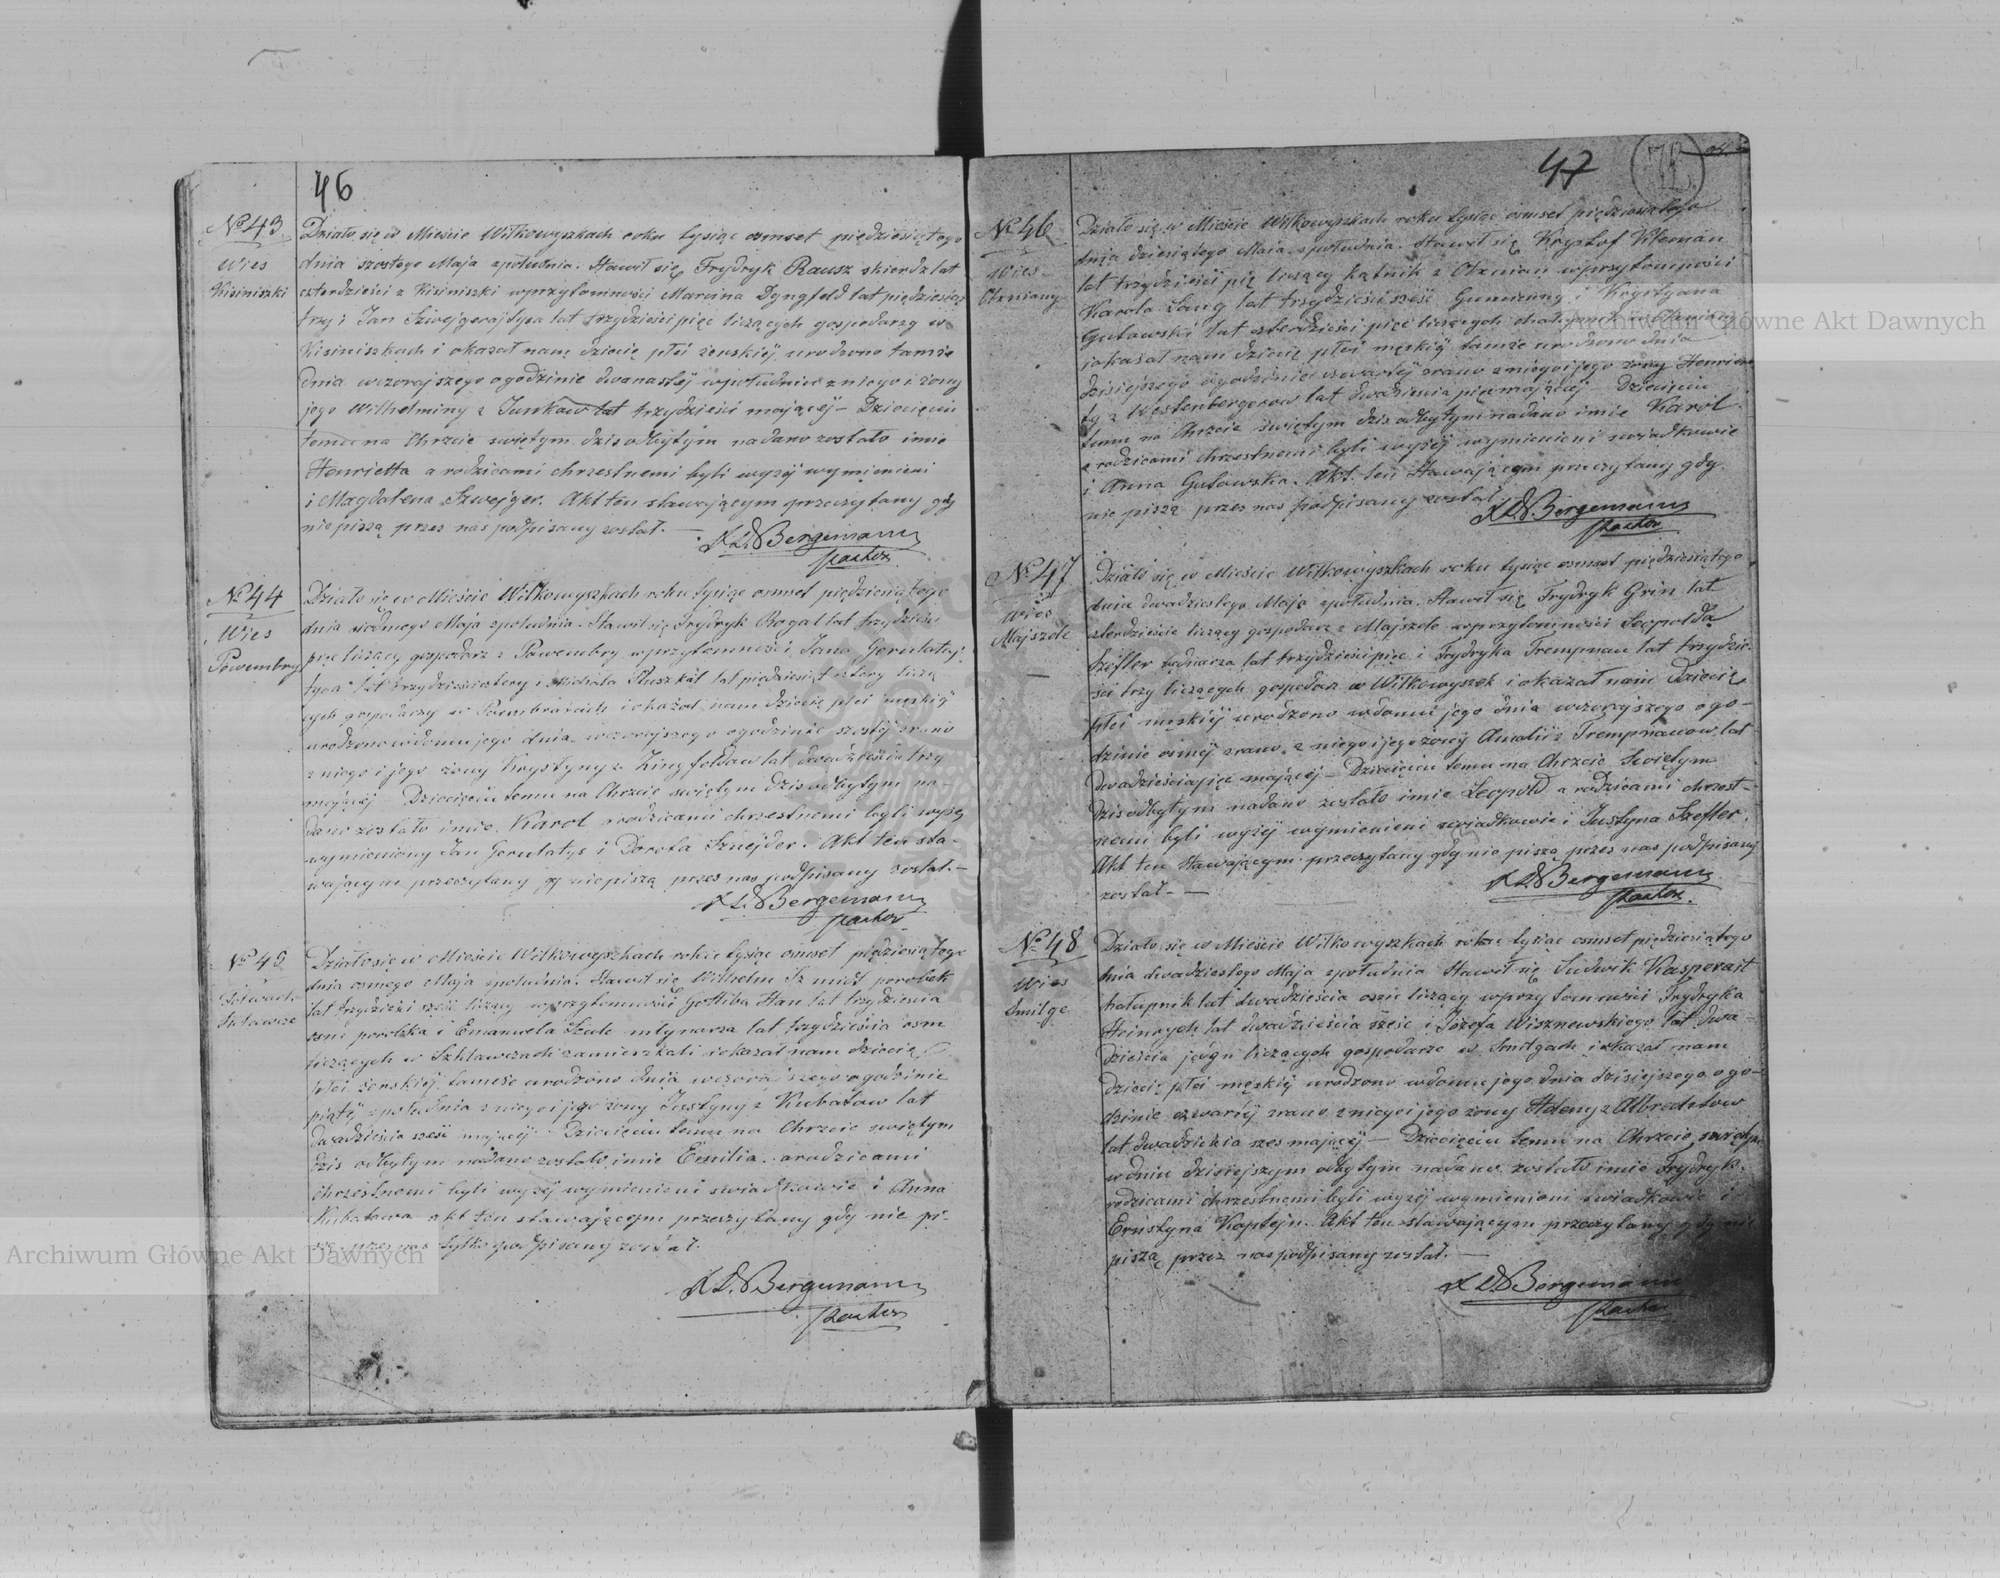 46
№ 43
Wies
Kisiniszki
Działo się w Mieście Wilkowyszkach roku tysiąc osmset piędziesiątego
dnia szostego Maja zpołudnia. Stawił się Frydryk Rausz skierdz lat
czterdzieści z Kisiniszki wprzytomności Marcina Dyngfeld lat piędziesiąt
trzy i Jan lat trzydzieści pięc liczących gospodarzy w
Kisiniszkach i okazał nam dziecię płci żenskiéj urodzone tamże
dnia wczorajszego o godzinie dwanastéj wpołudnie z niego i żony
jego Wilhelminy z Junkow lat trzydzieści mającéj – Dziecięciu
temu na Chrzcie swiętym dzis odbytym nadano zostało imie
Henrietta a rodzicami chrzestnemi byli wyzéj wymienieni
i Magdalena Szwejger. Akt ten stawającym przeczytany gdy
nie piszą przez nas podpisany został. —
Bergemann
Pastor
№ 44
Wies
Powembry
Działo się w Mieście Wilkowyszkach roku tysiąc osmset piędziesiątego
dnia siodmego Maja zpołudnia. Stawił się Frydryk Rogal lat trzydzieści
pięc liczący gospodarz z Powembry wprzytomności Jana
lat trzydzieści cztery i Michała lat piędziesiąt cztery liczą
cych gospodarzy w i okazał nam dziecię płci męskiéj
urodzone wdomu jego dnia wczorajszego o godzinie szostéj zrano
z niego i jego żony Krystyny z Kingfeldow lat dwadzieścia trzy
mającéj Dziecięciu temu na Chrzcie swiętym dzis odbytym na
dano zostało imie Karol a rodzicami chrzestnemi byli wyzej
wymieniony Jan i Dorota Sznejder. Akt ten sta-
wającym przeczytany gy niepiszą przez nas podpisany został. —
Bergemann
Pastor
№ 45
Działo się w Mieście Wilkowyszkach roku tysiąc osmset piędziesiątego
dnia osmego Maja zpołudnia. Stawił się Wilhelm Szmidt porobek
lat trzydzieści szesć liczący wprzytomności Gottliba Han lat trzydzieścia
osm porobka i Emanuela młynarza lat trzydzieścia osm
liczących w zamieszkali i okazał nam dziecię
płci żenskiéj tameże urodzono dnia wczorajszego o godzinie
piątéj zpołudnia z niego i jego żony Justyny z Kubatow lat
dwadzieścia szesć mającéj – Dziecięciu temu na Chrzcie swiętym
dzis odbytym nadano zostało imie Emilia. a rodzicami
chrzestnemi byli wyzéj wymienieni swiadkowie i Anna
Kubatowa akt ten stawającym przeczytany gdy nie pi-
szą przez nas tylko podpisany został.
Bergemann
Pastor
47
72
№ 46
Wies
Ożniany
Działo się w Mieście Wilkowyszkach roku tysiąc osmset piędziesiątego
dnia dziesiątego Maia zpołudnia. Stawił się Krysztof Kleman
lat trzydzieści pię liczący kątnik z Ożnian wprzytomności
Karola Lang lat trzydzieści szesć i Krystyana
Gutowski lat czterdzieści pięć liczących
i okazał nam dziecię płci męskiéj tamże urodzono dnia
dzisiejszego o godzinie czwartéj zrano z niego i jego żony Henriet
ty z Westenbergerow lat dwadzieścia pięć mającéj – Dziecięciu
temu na Chrzcie swiętym dzis odbytym nadano imie Karol
a rodzicami chrzestnemi byli wyzéj wymienieni swiadkowie
i Anna Gutowska. Akt ten Stawającym przeczytany gdy
nie piszą przez nas podpisany został.
Bergemann
Pastor
№ 47
Wies
Majszele
—
Działo się w Mieście Wilkowyszkach roku tysiąc osmset piędziesiątego
dnia dwadziestego Maja zpołudnia. Stawił się Frydryk Grin lat
czterdzieście liczący gospodarz z Majszele wprzytomności Leopolda
Szefler bednarza lat trzydzieści pięc i Frydryka Trempnau lat trzydzie-
ści trzy liczących gospodarz w Wilkowyszek i okazał nam Dziecię
płci męskiéj urodzono wdomu jego dnia wczorajszego o go-
dzinie osméj zrano, z niego i jego żony Amalii z Trempnauow lat
dwadzieścia pięc mającéj – Dziecięciu temu na Chrzcie Swiętym
dzis odbytym nadano zostało imie Leopold a rodzicami chrzest-
nemi byli wyzéj wymienieni swiadkowie i Justyna Szefler.
Akt ten stawającym przeczytany gdy nie piszą przez nas podpisany
został. —
Bergemann
Pastor.
№ 48
Wies
Smilge
Działo się w Mieście Wilkowyszkach roku tysiąc osmset piędziesiątego
dnia dwadziestego Maja zpołudnia Stawił się Ludwik Kasperait
chałupnik lat dwadzieścia osm liczący wprzytomności Frydryka
Heinrych lat dwadzieścia szesc i Józefa Wisznewskiego lat dwa-
dzieścia jeden liczących gospodarze w Smilgach i okazał nam
dziecię płci męskiéj urodzono wdomu jego dnia dzisiejszego o go-
dzinie czwartéj zrano z niego i jego żony Heleny z Albrechtow
lat dwadzieścia szes mającéj – Dziecięciu temu na Chrzcie swiętym
wdniu dzisiejszym odbytym nadano zostało imie Frydryk.
rodzicami chrzestnemi byli wyzéj wymienieni swiadkowie i
Ernstyna Kaptejn. Akt ten stawającym przeczytany gdy nie
piszą przez nas podpisany został. —
Bergemann
Pastor
Archiwum Główne Akt Dawnych
Archiwum Główne Akt Dawnych